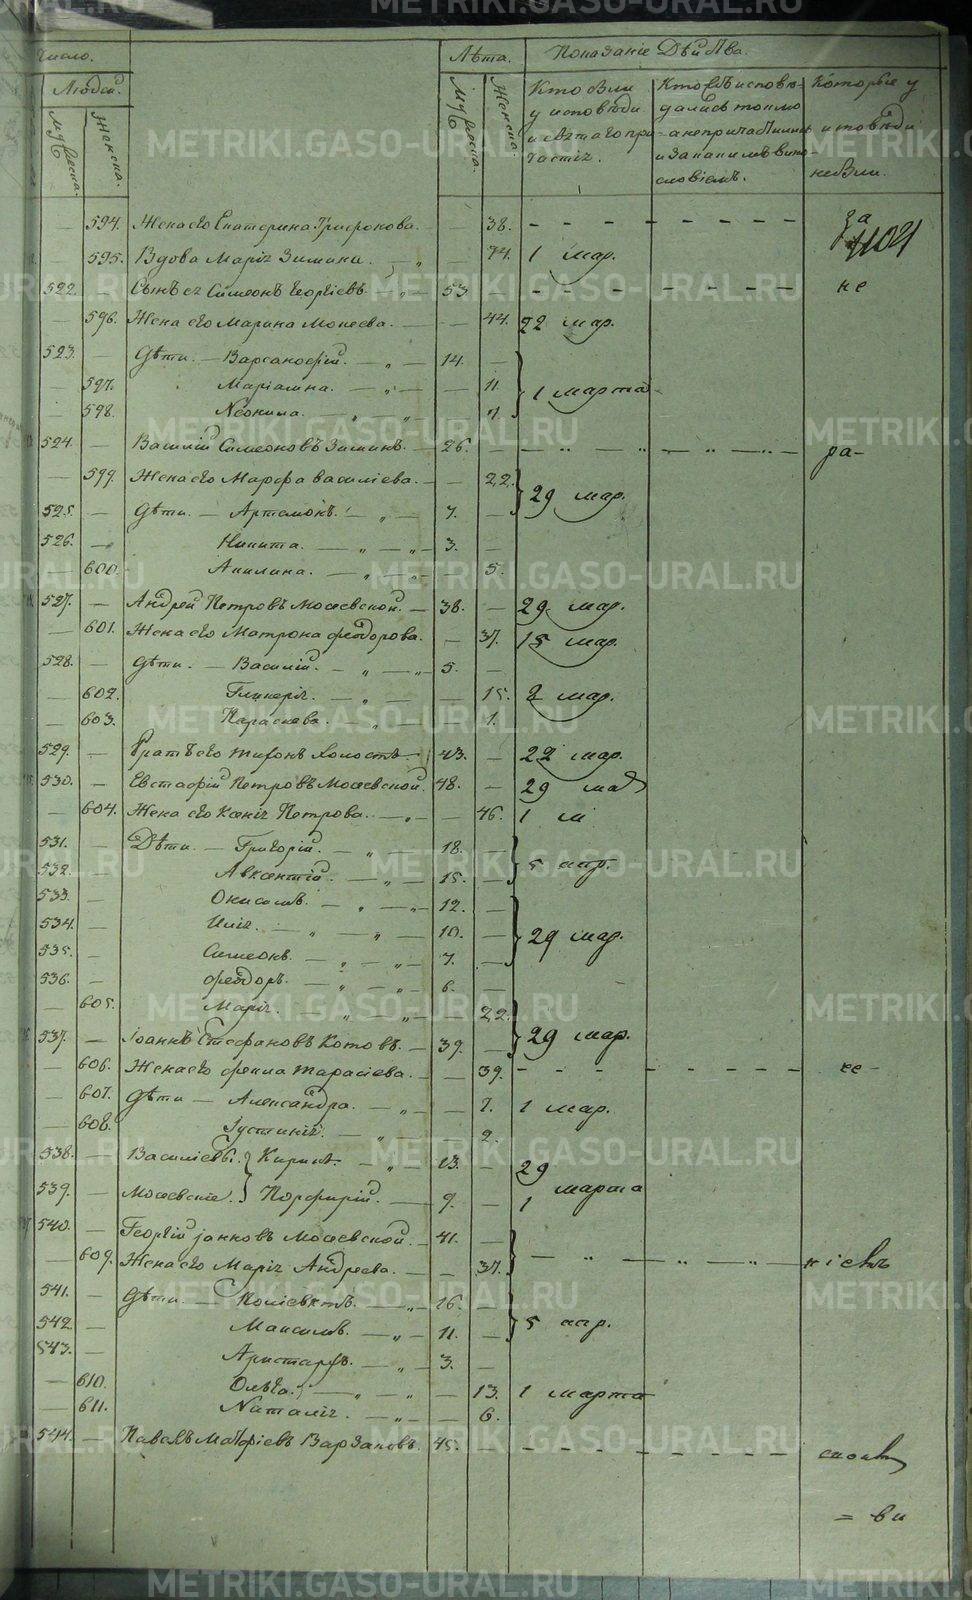 Число. Лѣта. Показаніе Дѣйства.
Людей.
Мужеска. Женска. Мужеска. Женска. Кто были у исповѣди и святаго причастія. Кто исповѣдались токмо а не причастились и за какимъ винословіемъ. Которые у исповѣди не были.
594. Жена его Екатерина Трифонова. 38. за
595. Вдова Марія Зимина. 74. 1 мар.
522. Сынъ ея Симеонъ Георгіевъ. 53 не
596. Жена его Марина Мокеева. 44. 22 мар.
523. Дѣти. Варсанофій. 14.
597. Маріамна. 11. 1 марта
598. Неонила. 7.
524. Василій Симеоновъ Зиминъ. 26. ра-
599. Жена его Марфа Василіева. 22.
525. Дѣти. Артамонъ. 7. 29 мар.
526. Никита. 3.
600. Акилина. 5.
527. Андрей Петровъ Мосеевской. 38. 29 мар.
601. Жена его Матрона Феодорова. 37. 15 мар.
528. Дѣти. Василій. 5.
602. Гликерія. 15. 2 мар.
603. Параскева. 1.
529. Братъ его Тихонъ холостъ. 43. 22 мар.
530. Евстафій Петровъ Мосеевской. 48. 29 мар
604. Жена его Ксенія Петрова. 46. 1 м
531. Дѣти. Григорій. 18.
532. Авксентій. 15. 5 апр.
533. Онисимъ. 12.
534. Илія. 10. 29 мар.
535. Симеонъ. 7.
536. Феодоръ. 6.
605. Марія. 22.
537. Іоаннъ Стефановъ Котовъ. 39. 29 мар.
606. Жена его Фекла Тарасіева. 39. не-
607. Дѣти Александра. 7. 1 мар.
608. Іустинія. 2.
538. Василіевы. Кирилъ. 13. 29
539. Мосеевскіе. Порфирій. 9. 1 марта
540. Георгій Іанновъ Мосеевской. 41.
609. Жена его Марія Андреева. 37.
541. Дѣти. Поліевктъ. 16.
542. Максимъ. 11. 5 апр.
543. Аристархъ. 3.
610. Ольга. 13. 1 марта
611. Наталія. 6.
544. Павелъ Матфіевъ Варзаковъ. 45.
= ви
METRIKI.GASO-URAL.RU